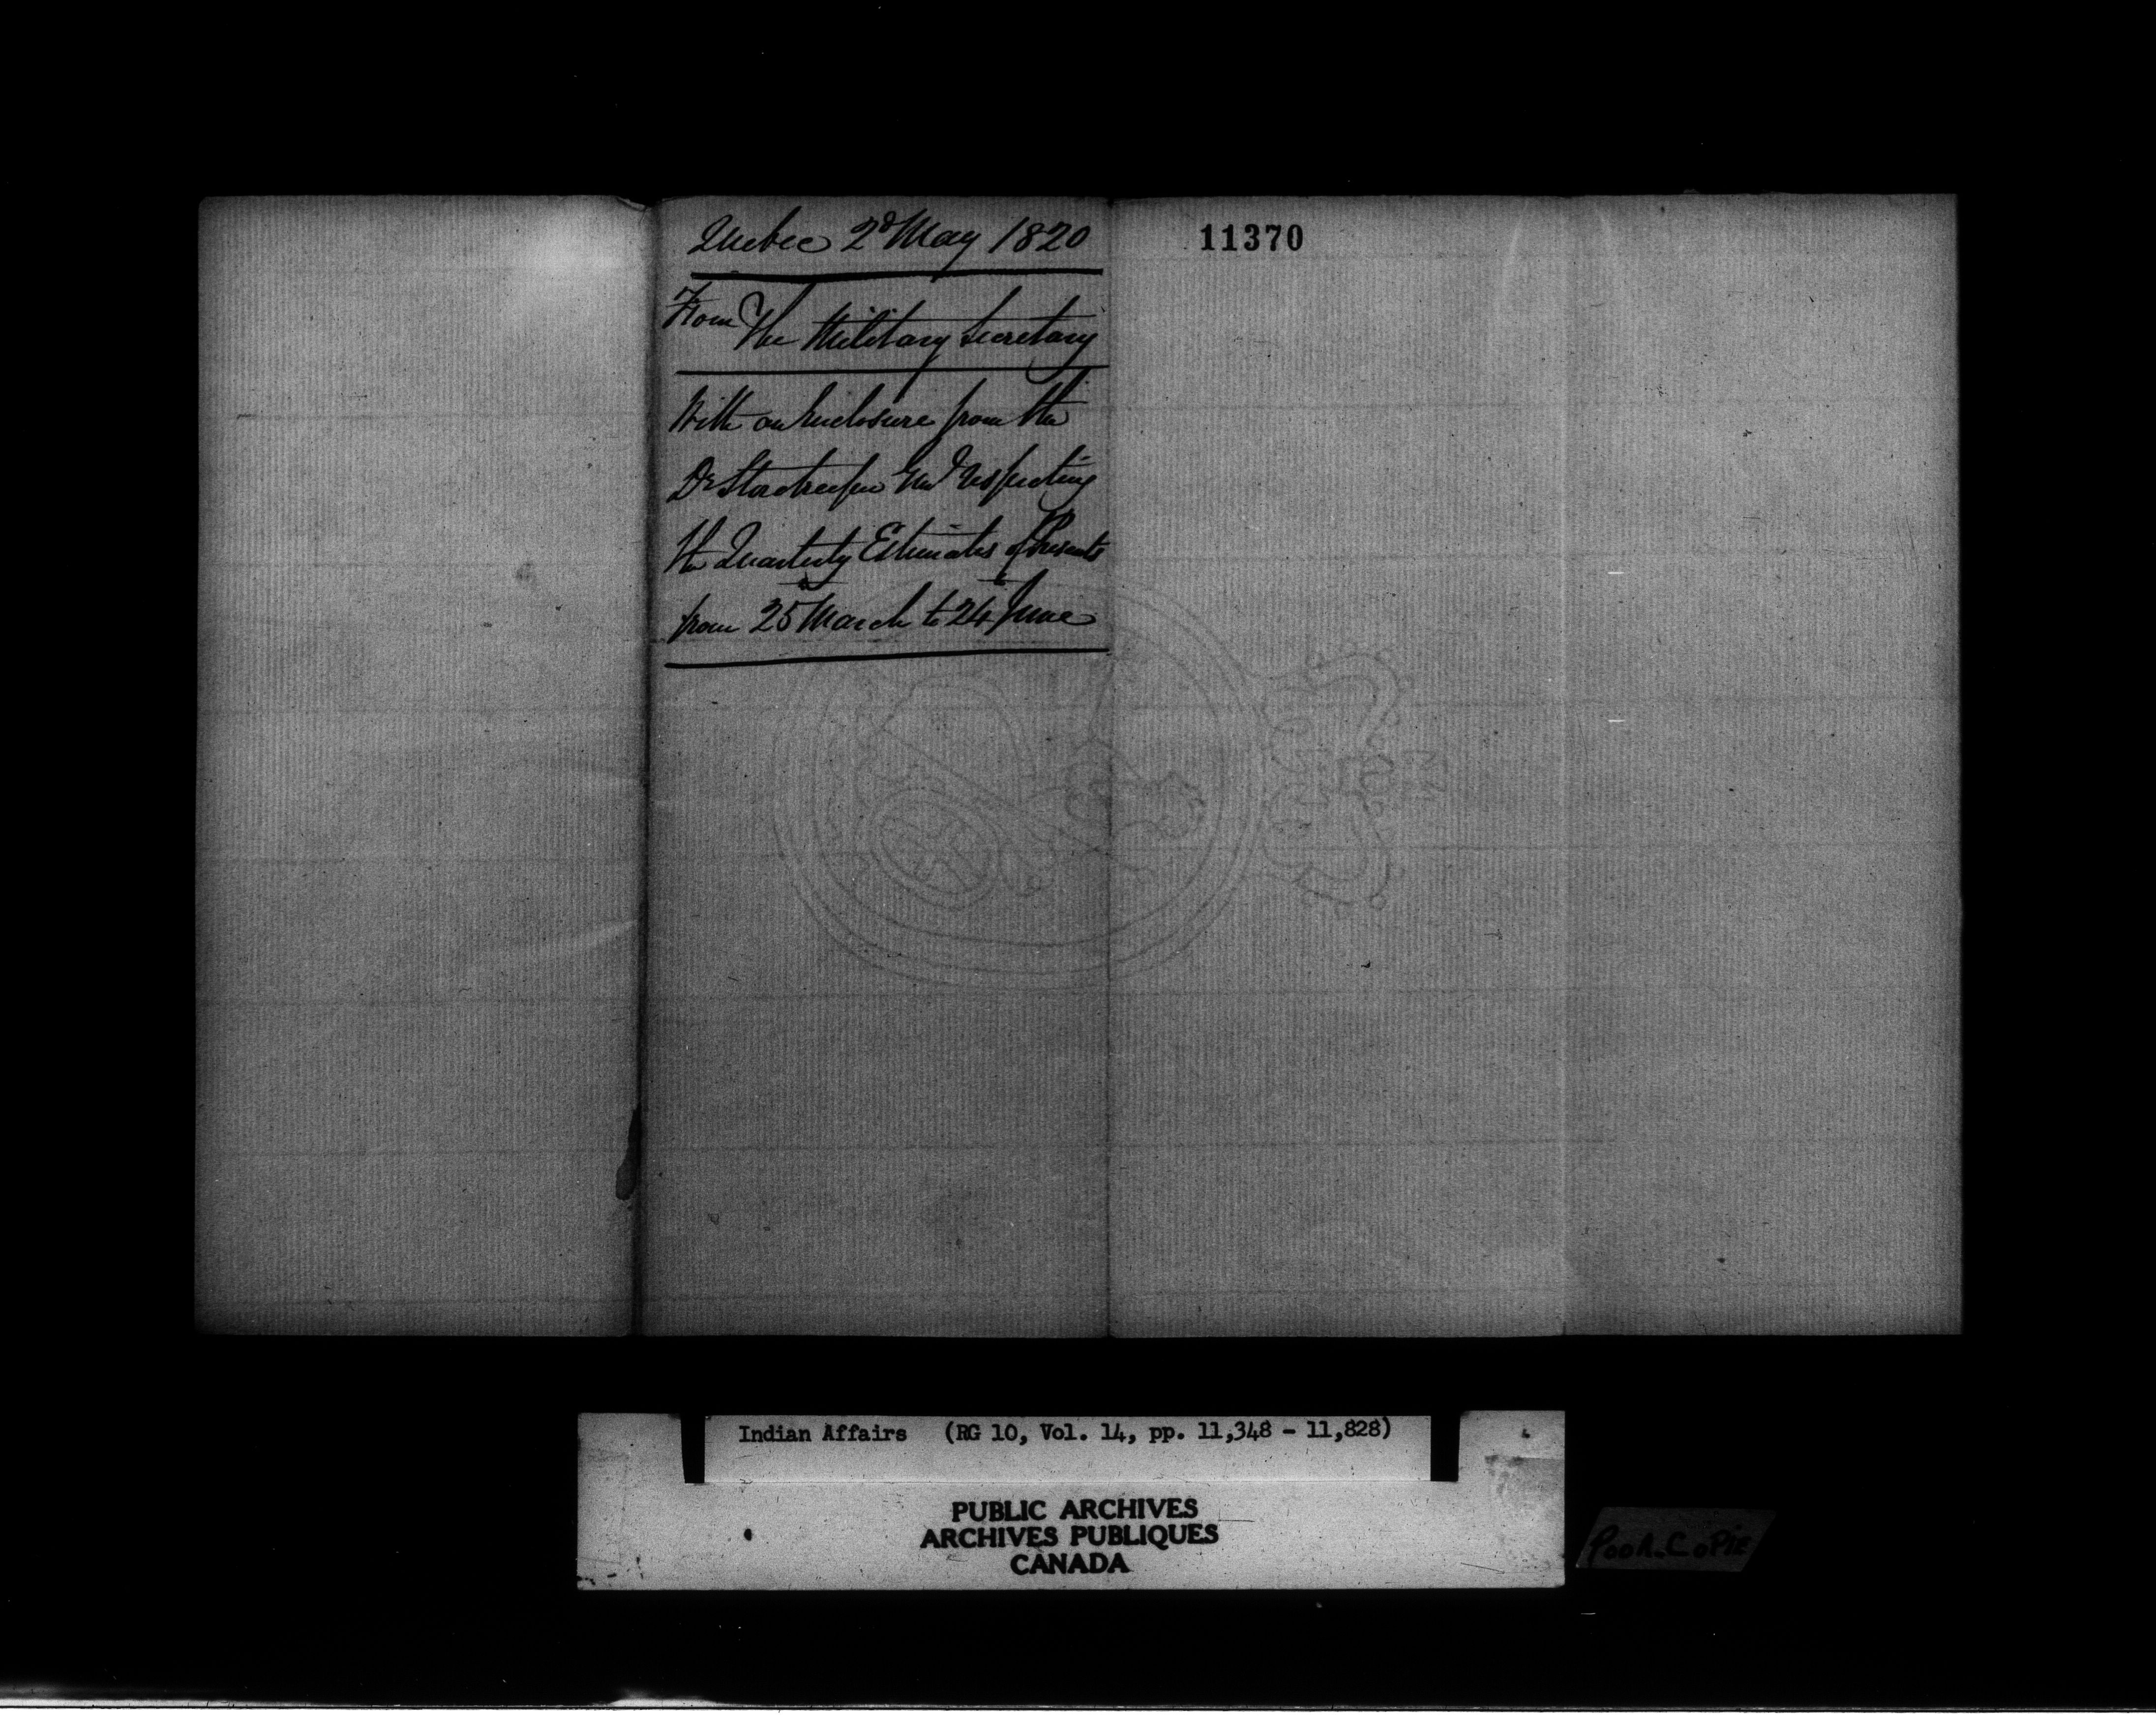 Quebec 2d May 1820
From The Military Secretary
With an Enclosure from the
Dr Storekeeper Genl respecting
the Quarterly Estimates of Presents
from 25 March to 24 June
11370
Indian Affairs (RG 10, Vol. 14, pp. 11,348 - 11,828)
PUBLIC ARCHIVES
ARCHIVES PUBLIQUES
CANADA
Poor.CoPie